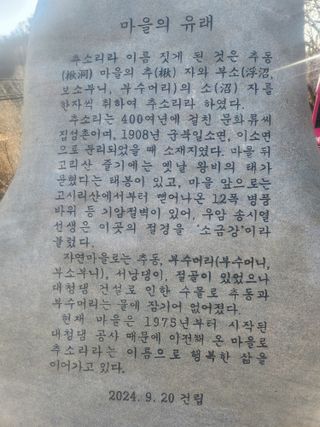 마을의 유래
추소리라 이름 짓게 된 것은 추동
(楸洞) 마을의 추(楸) 자와 부소(浮沼,
보소부니, 부수머리)의 소(沼) 자를
한자씩 취하여 추소리라 하였다.
추소리는 400여년에 걸친 문화류씨
집성촌이며, 1908년 군북일소면, 이소면
으로 분리되었을 때 소재지였다. 마을 뒤
고리산 줄기에는 옛날 왕비의 태가
묻혔다는 태봉이 있고, 마을 앞으로는
고시리산에서부터 뻗어나온 12폭 병풍
바위 등 기암절벽이 있어, 우암 송시열
선생은 이곳의 절경을 '소금강'이라
불렀다.
자연마을로는 추동, 부수머리(부수머니,
부소부니), 서낭댕이, 절골이 있었으나
대청댐 건설로 인한 수몰로 추동과
부수머리는 물에 잠기어 없어졌다.
현재 마을은 1975년부터 시작된
대청댐 공사 때문에 이전해 온 마을로
추소리라는 이름으로 행복한 삶을
이어가고 있다.
2024. 9. 20 건립